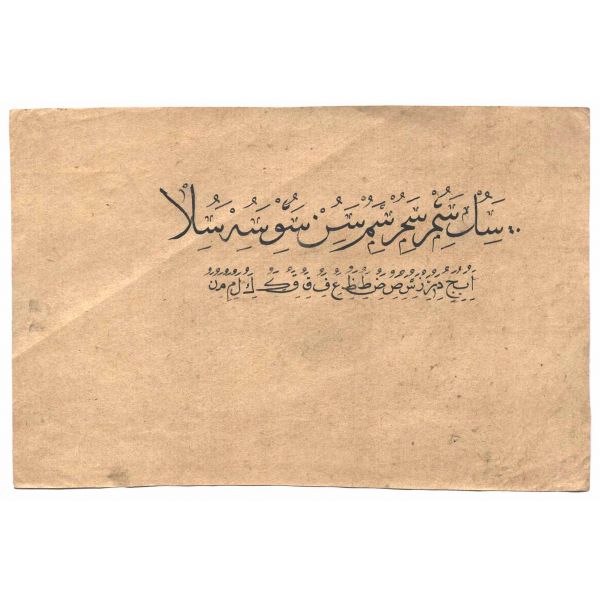 سل سم سم سم سن سو سه سلا
ا ب ج د ر ز س ص ض ط ظ ع ف ق ك ل م ن